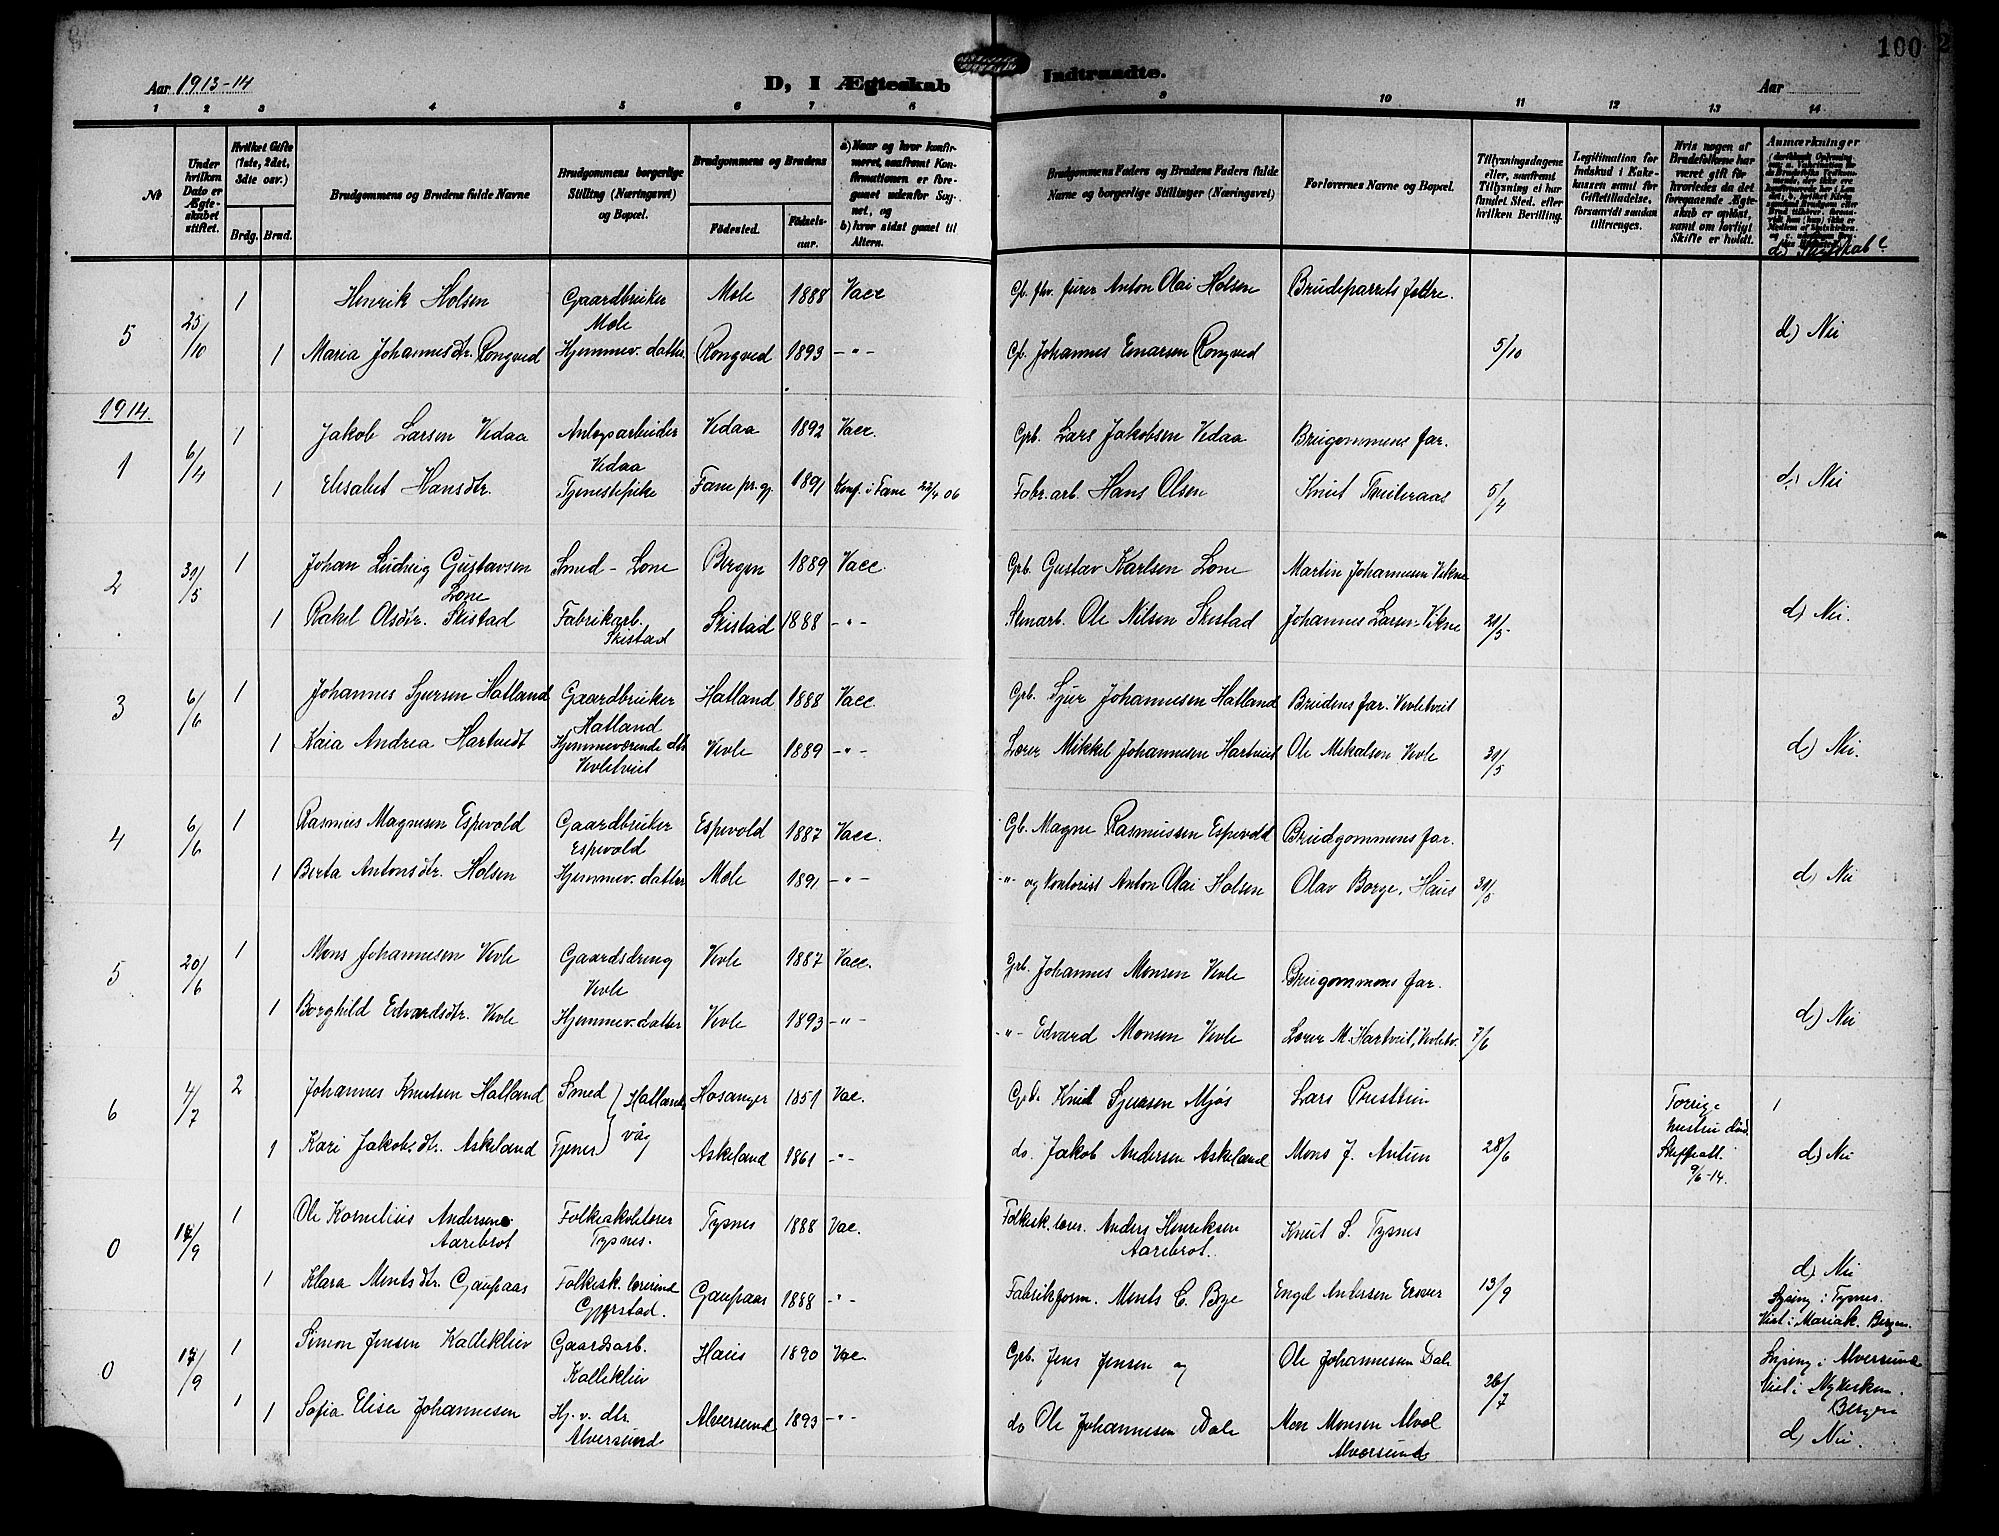 100
Aar 1913-14
D, I Ægteskab Indtraadte.
Aar
1 2 3 4 5 6 7 8 9 10 11 12 13 14
№
Under hvilken Dato er Ægteskabet stiftet.
Hvilket Gifte (1ste, 2det, 3die osv.)
Brdg. Brud.
Brudgommens og Brudens fulde Navne
Brudgommens borgerlige Stilling (Næringsvei) og Bopæl.
Brudgommens og Brudens
Fødested. Fødselsaar.
a) Naar og hvor konfirmeret, saafremt Konfirmationen er foregaaet udenfor Sognet, og
b) hvor sidst gaaet til Alters.
Brudgommens Faders og Brudens Faders fulde Navne og borgerlige Stillinger (Næringsvei)
Forlovernes Navne og Bopæl.
Tillysningsdagene eller, saafremt Tillysning ei har fundet Sted, efter hvilken Bevilling.
Legitimation for Indskud i Enkekassen samt for Giftetilladelse, forsaavidt saadan tiltrænges.
Hvis nogen af Brudefolkene har været gift før hvorledes da det foregaaende Ægteskab er opløst, samt om lovligt Skifte er holdt.
Anmærkninger
d) Slegtskab?
5 25/10 1 Henrik Holsen Gaardbruker Mole Mole 1888 Vacc Gb. fhv. furer Anton Olai Holsen Brudeparrets fædre.
1 Maria Johannesdtr. Rongved Hjemmev. datter Rongved 1893 -"- Gb. Johannes Einarsen Rongved 5/10 d) Nei
1914.
1 6/4 1 Jakob Larsen Vedaa Anlegsarbeider Vedaa Vedaa 1892 Vacc. Grb. Lars Jakobsen Vedaa Brugommens far.
1 Elisabet Hansdtr. Tjenestepike Fane pr.gj. 1891 Konf. i Fane 22/4 06 Fabr.arb. Hans Olsen Knut Tveiteraas 5/4 d) Nei
2 31/5 1 Johan Ludvig Gustavsen Lone Smed - Lone Bergen 1889 Vacc. Grb. Gustav Karlsen Lone Martin Johannesen Vikne
1 Rakel Olsdtr. Skistad Fabrikarb. Skistad Skistad 1888 -"- Stenarb. Ole Nilsen Skistad Johannes Larsen Vikne 21/5 d) Nei.
3 6/6 1 Johannes Sjursen Hatland Gaardbruker Hatland Hatland 1888 Vacc Grb. Sjur Johannesen Hatland Brudens far. Vevletveit
1 Kaia Andrea Hartvedt Hjemmeværende dtr Vevletveit Vevle 1889 -"- Lærer Mikkel Johannesen Hartveit Ole Mikalsen Vevle 31/5 d) Nei.
4 6/6 1 Rasmus Magnesen Espevold Gaardbruker Espevold Espevold 1887 Vacc. Gb. Magne Rasmussen Espevold Brudgommens far.
1 Berta Antonsdtr. Holsen Hjemmev. datter Mole 1891 -"- -"- og kontorist Anton Olai Holsen Olav Borge, Haus 31/5 d) Nei
5 20/6 1 Mons Johannesen Vevle Gaardsdreng Vevle Vevle 1887 Vacc. Grb. Johannes Monsen Vevle Brugommens far.
1 Borghild Edvardsdtr. Vevle Hjemmev. datter Vevle 1893 -"- -"- Edvard Monsen Vevle Lærer M. Hartveit, Vevletv. 7/6 d) Nei
6 4/7 2 Johannes Knutsen Hatland Smed Hatlands Hosanger 1851 Vac. Knut Sjursen Mjøs Lars Presttun Forrige hustru død. 1
1 Kari Jakobsdtr. Askeland Tjener våg Askeland 1861 -"- do. Jakob Andersen Askeland Mons J. Antun 28/6 Skifteatt. 9/6-14. d) Nei
0 17/9 1 Ole Kornelius Andersen Aarebrot Folkeskolelærer Tysnes. Tysnes 1888 Vac. Folkesk. lærer. Anders Henriksen Aarebrot. Knut S. Tysnes
1 Klara Mentsdtr. Gaupaas Folkesk. lærerind Gjerstad. Gaupaas 1888 -"- Fabrikform. Ments C. Bye Engel Andersen 13/9 d) Nei
Lysing i Tysnes.
Viet i Mariak. Bergen.
0 17/9 1 Simon Jensen Kalleklev Gaardsarb. Kalleklev Haus 1890 Vac. Grb. Jens Jensen og Ole Johannesen Dale 26/7 Lysing i Alversund
Viet i Nykirken. Bergen
1 1 Sofia Elise Johannesen Hj. v. dtr. Alversund Alversund 1893 -"- do Ole Johannesen Dale Mon Monsen Alvøl Alversund d) Nei.